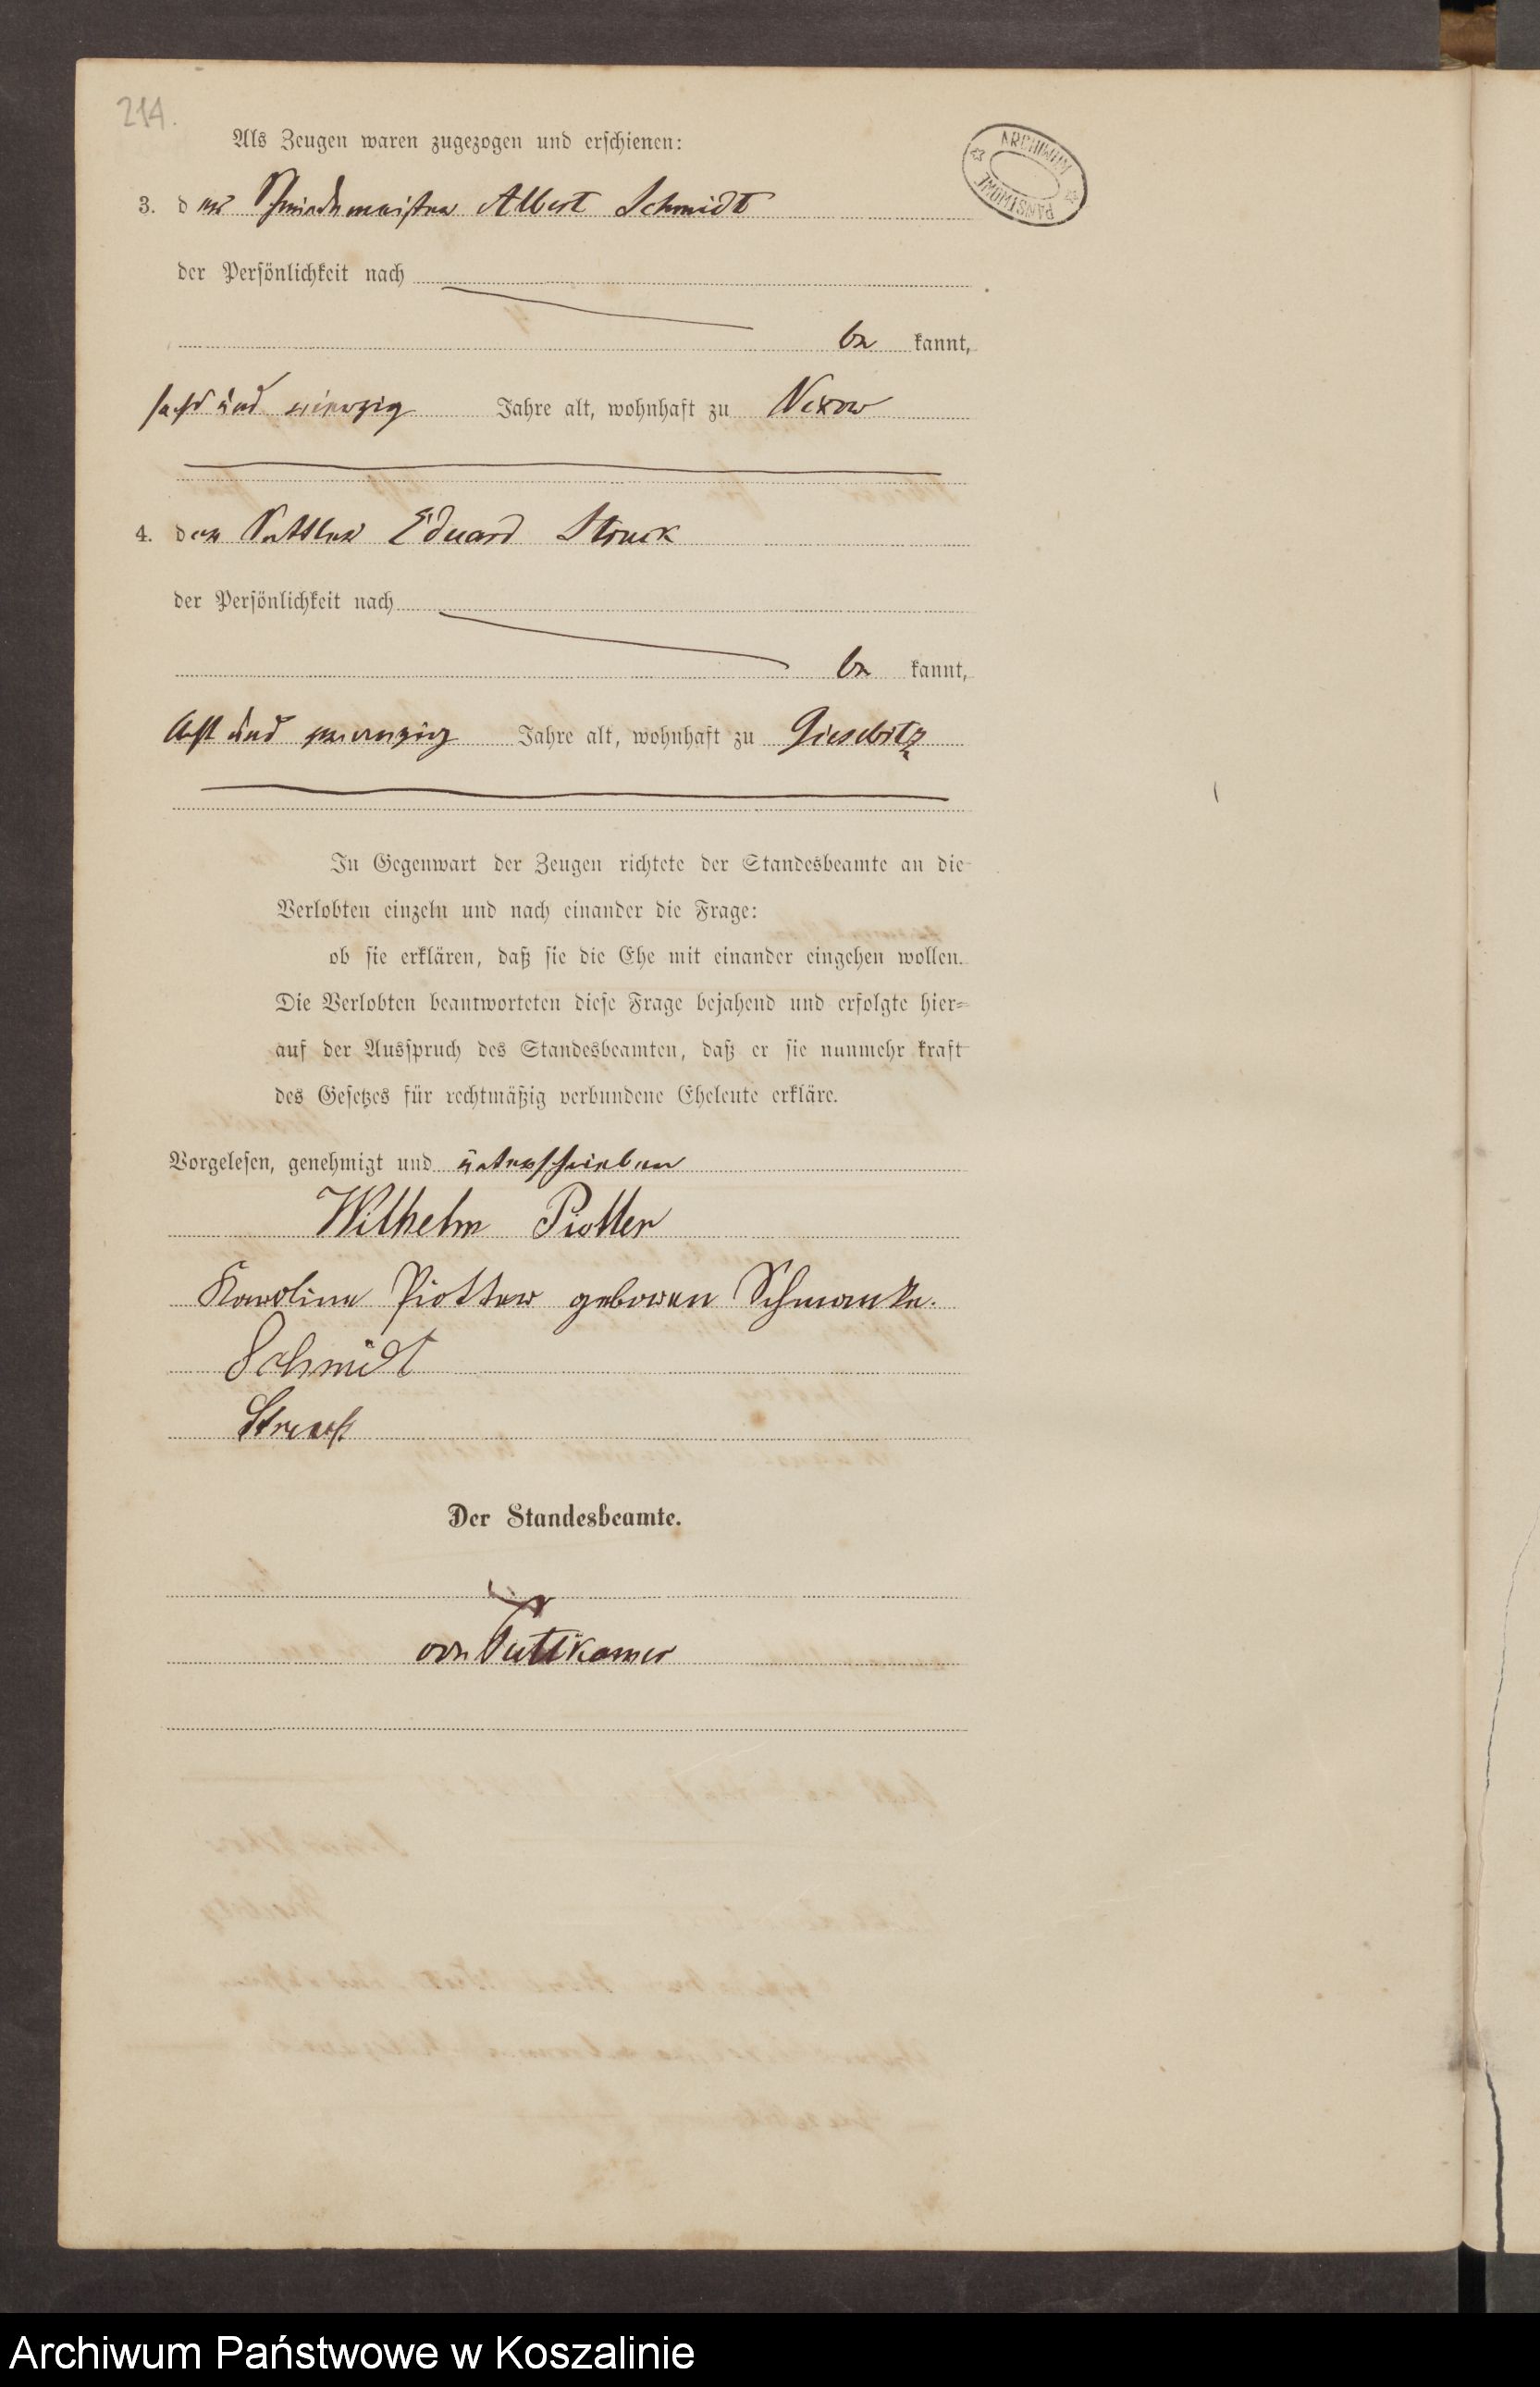 214.
Als Zeugen waren zugezogen und erschienen:
ARCHIWUM PAŃSTWOWE
3. der Schmiedemeister Albert Schmidt
der Persönlichkeit nach
be kannt,
sechs und vierzig Jahre alt, wohnhaft zu Nexow
4. der Sattler Eduard Struck
der Persönlichkeit nach
be kannt,
Acht und zwanzig Jahre alt, wohnhaft zu Giesebitz
In Gegenwart der Zeugen richtete der Standesbeamte an die
Verlobten einzeln und nach einander die Frage:
ob sie erklären, daß sie die Ehe mit einander eingehen wollen.
Die Verlobten beantworteten diese Frage bejahend und erfolgte hier=
auf der Ausspruch des Standesbeamten, daß er sie nunmehr kraft
des Gesetzes für rechtmäßig verbundene Eheleute erkläre.
Vorgelesen, genehmigt und unterschrieben
Wilhelm Piotter
Karoline Piotter geboren Schmanke.
Schmidt
Struck
Der Standesbeamte.
von Puttkamer
Archiwum Państwowe w Koszalinie